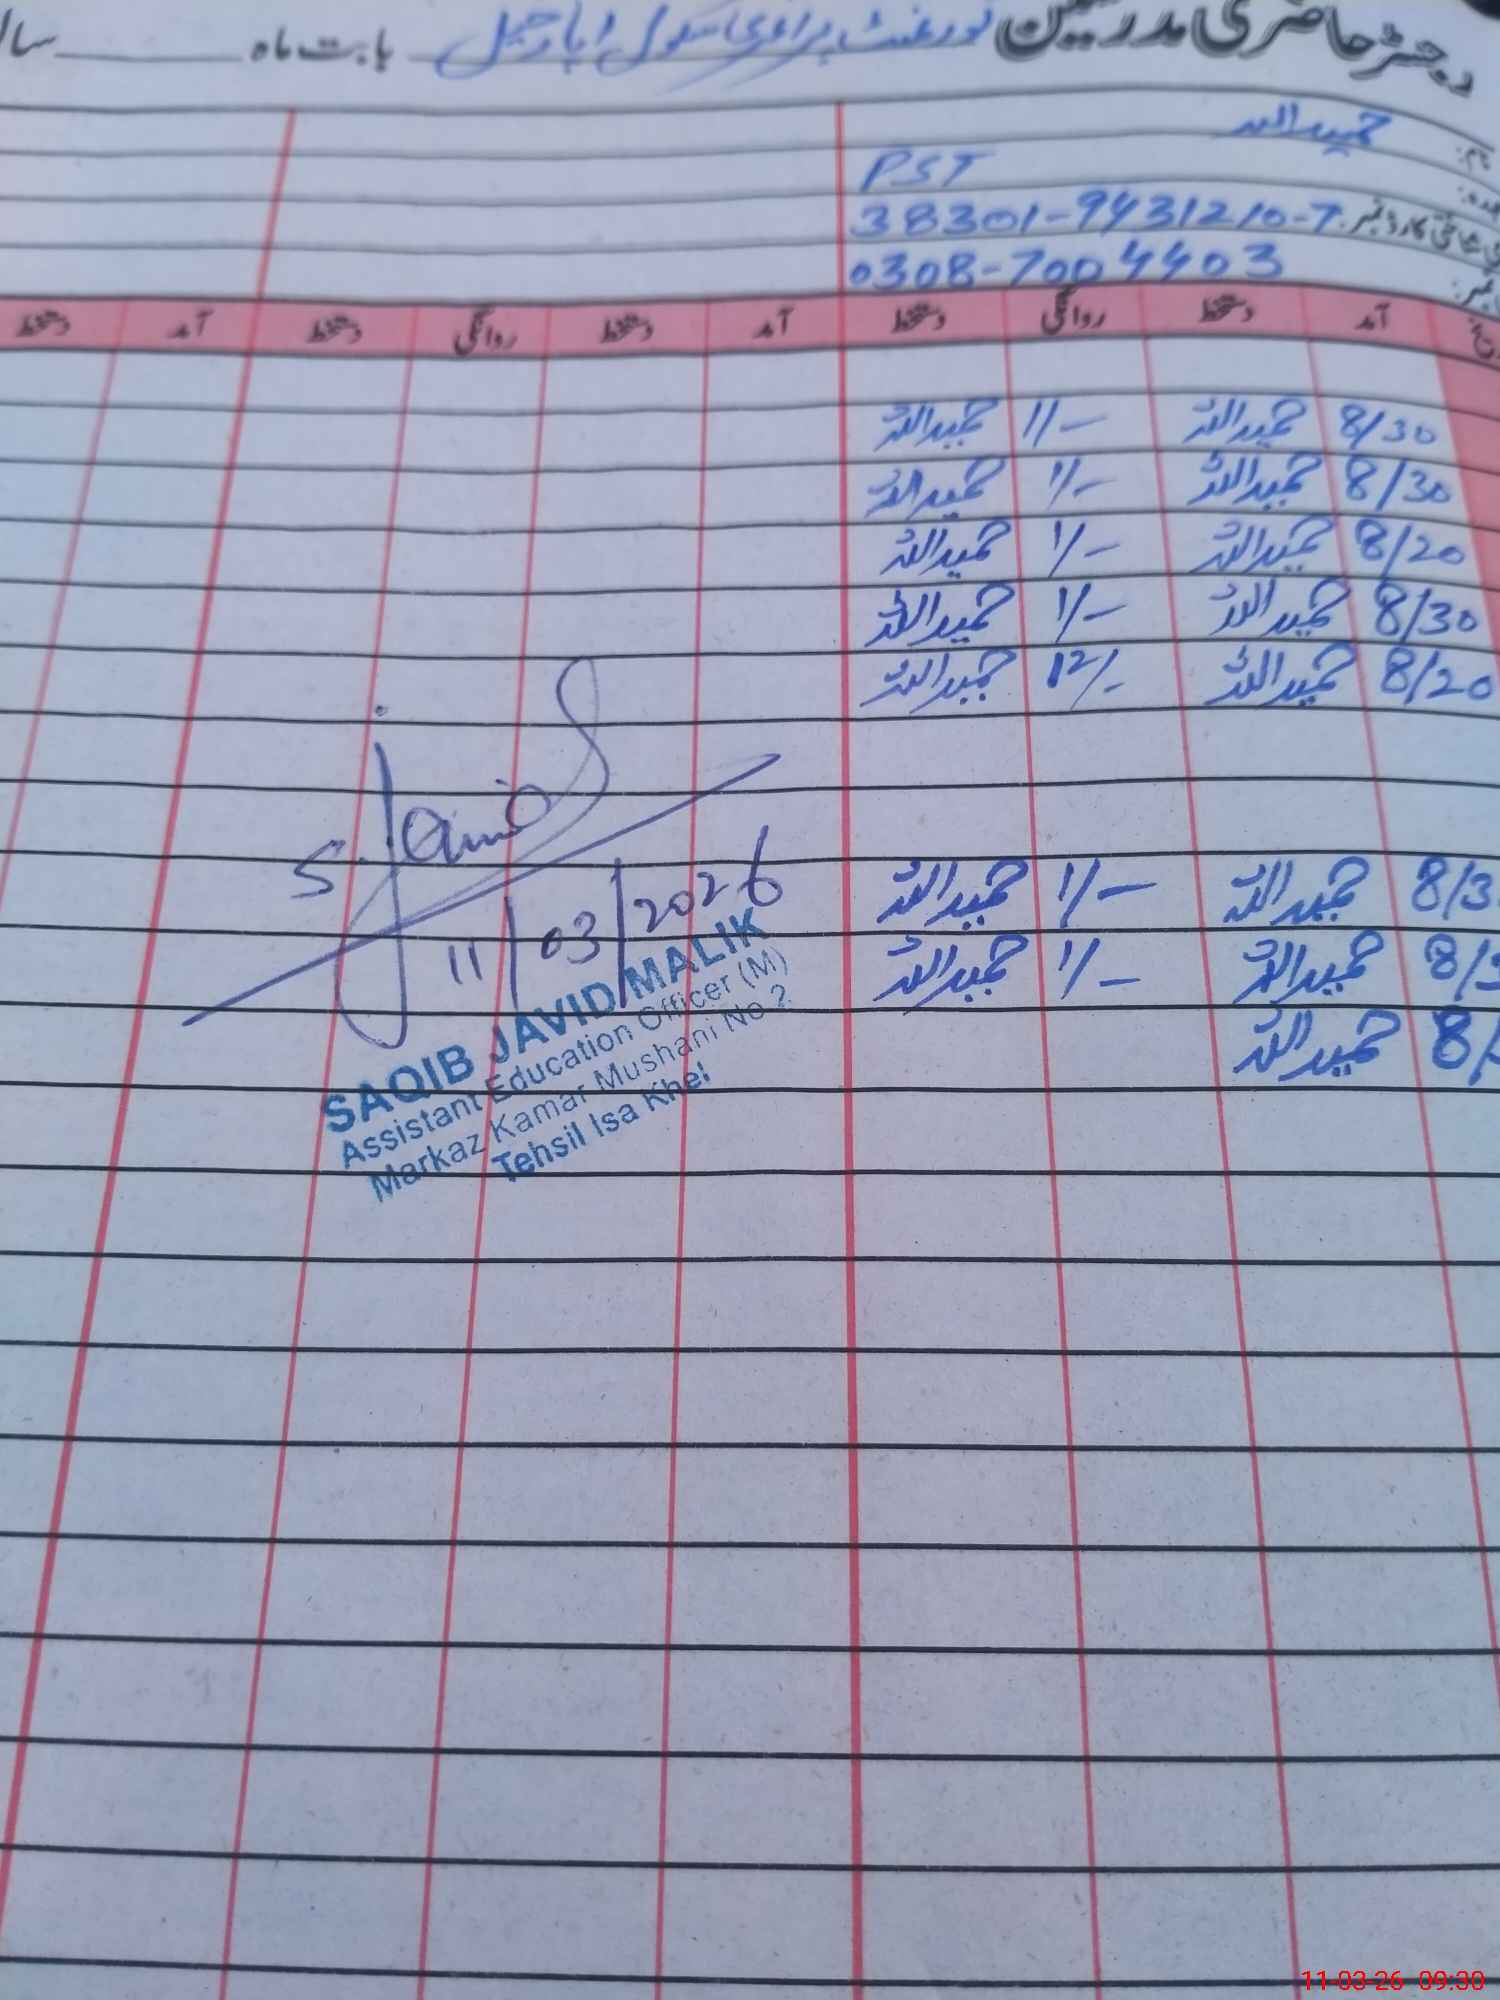 رجسٹر حاضری مدرسین گورنمنٹ پرائمری سکول بابت ماہ سال
حمید اللہ
PST
38301-9431210-7
0308-7004403
آمد دستخط روانگی دستخط آمد دستخط روانگی دستخط آمد دستخط
8/30 حمیداللہ 11/- حمیداللہ
8/30 حمیداللہ 1/- حمیداللہ
8/20 حمیداللہ 1/- حمیداللہ
8/30 حمیداللہ 1/- حمیداللہ
8/20 حمیداللہ 12/- حمیداللہ
8/3 حمیداللہ 1/- حمیداللہ
8/ حمیداللہ 1/- حمیداللہ
8/ حمیداللہ
S. Javid
11/03/2026
SAQIB JAVID MALIK
Assistant Education Officer (M)
Markaz Kamar Mushani No 2
Tehsil Isa Khel
11-03-26 09:30